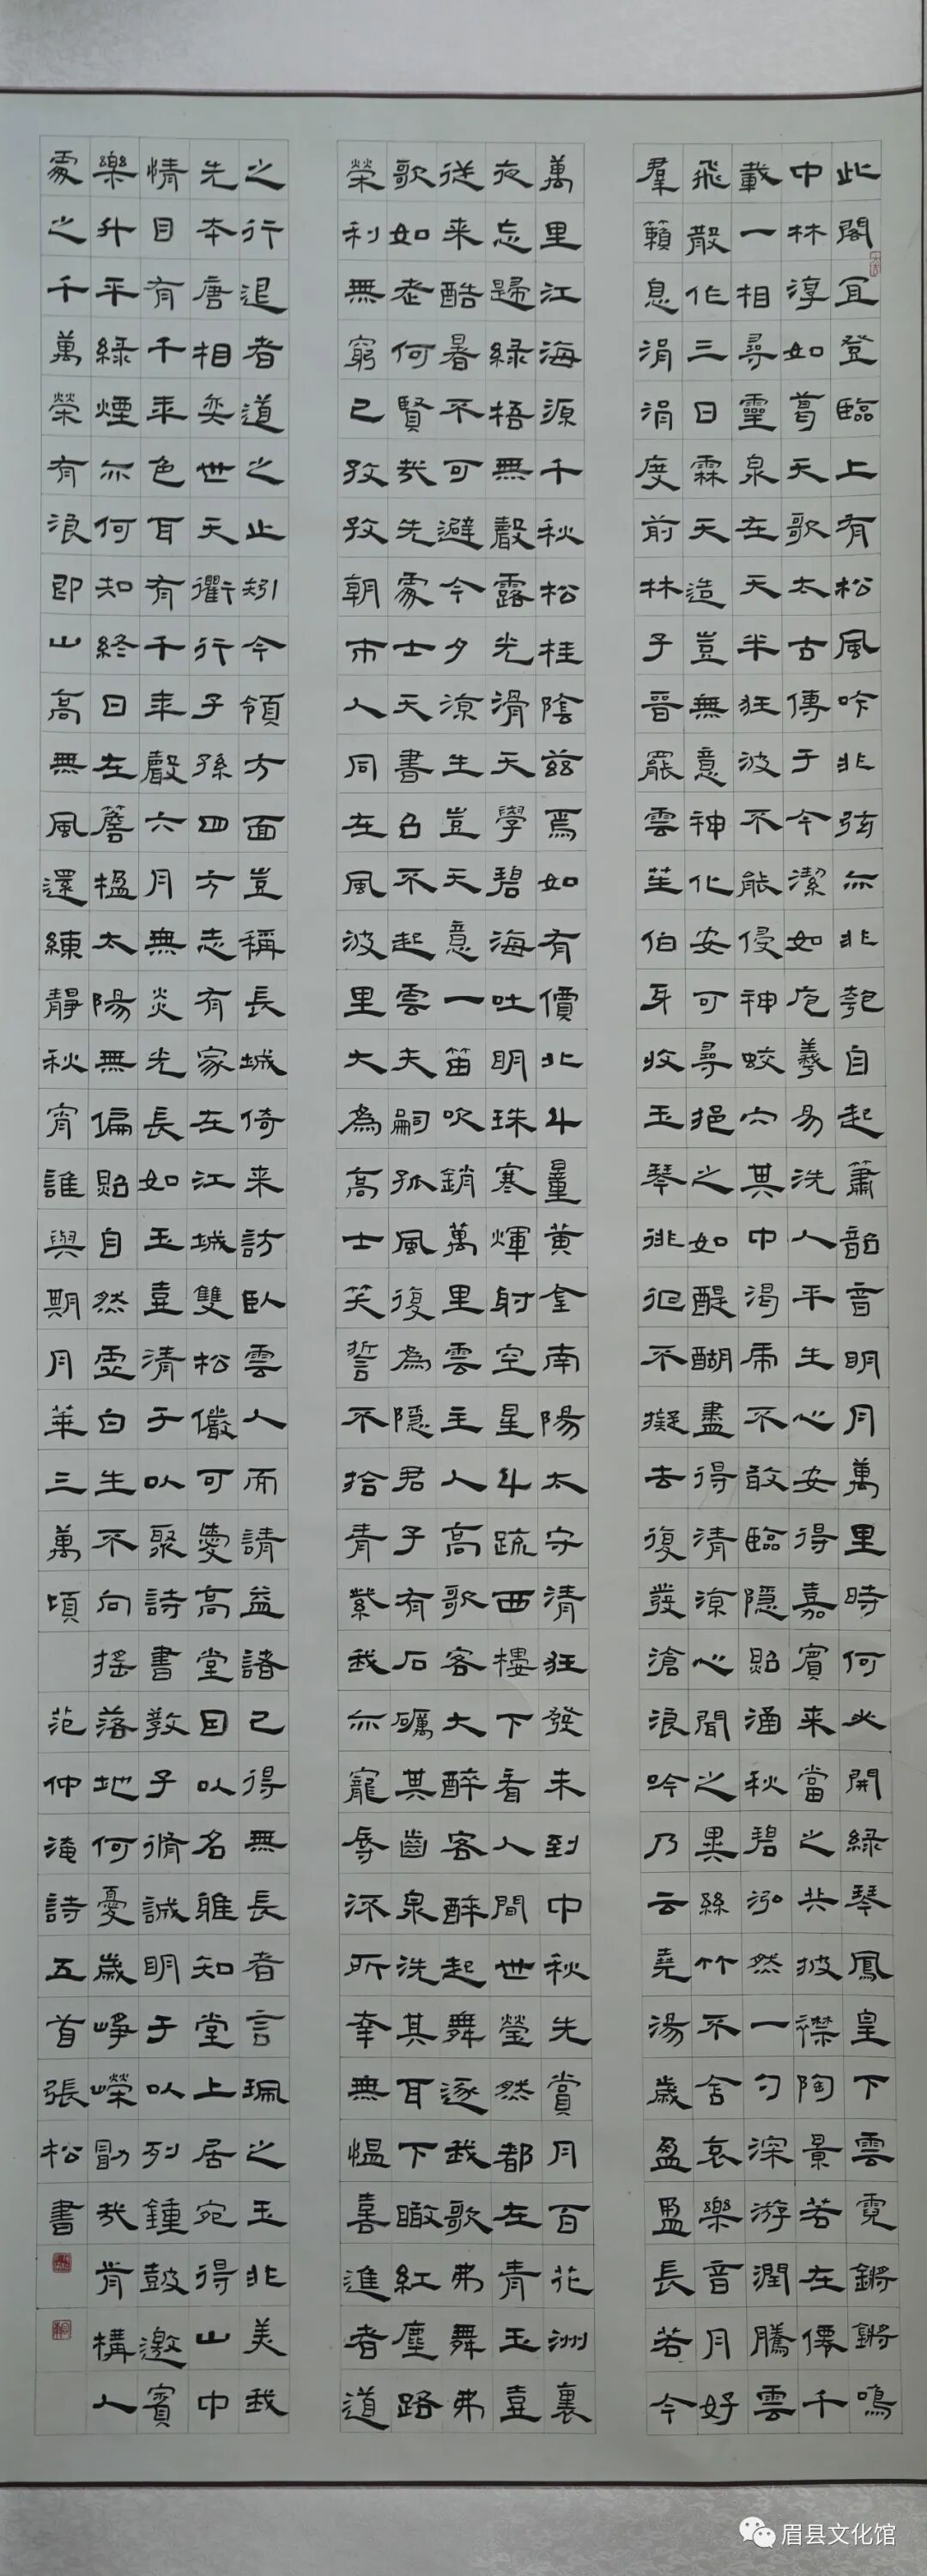 此閣宜登臨上有松風吟非弦亦非匏自起簫韶音明月萬里時何必開綠琴鳳皇下雲霓鏘鏘鳴
中林淳如葛天歌太古傳于今潔如庖羲易洗人平生心安得嘉賓来當之共披襟陶景若在僊千
載一相尋靈泉在天半狂波不能侵神蛟穴其中渴虎不敢臨隱照涵秋碧泓然一勺深游潤騰雲
飛散作三日霖天造豈無意神化安可尋挹之如醍醐盡得清涼心聞之異絲竹不含哀樂音月好
羣籟息涓涓度前林子晉罷雲笙伯牙收玉琴徘徊不擬去復發滄浪吟乃云堯湯歲盈盈長若今
萬里江海源千秋松桂陰茲焉如有價北斗量黄金南陽太守清狂發未到中秋先賞月百花洲裏
夜忘歸綠梧無聲露光滑天學碧海吐明珠寒輝射空星斗疏西樓下看人間世瑩然都在青玉壺
従来酷暑不可避今夕涼生豈天意一笛吹銷萬里雲主人高歌客大醉客醉起舞逐我歌弗舞弗
歌如老何賢哉先處士天書召不起雲夫嗣孤風復為隱君子有石礪其齒泉洗其耳下瞰紅塵路
榮利無窮已孜孜朝市人同在風波里大為高士笑誓不拾青紫我亦寵辱流所幸無愠喜進者道
之行退者道之止矧今領方面豈稱長城倚来訪臥雲人而請益諸己得無長者言珮之玉非美我
先本唐相奕世天衢行子孫四方志有家在江城雙松儼可愛高堂因以名雖知堂上居宛得山中
情目有千年色耳有千年聲六月無炎光長如玉壺清于以聚詩書教子脩誠明于以列鍾鼓邀賓
樂升平綠煙亦何知終日在簷楹太陽無偏照自然虛白生不向搖落地何憂歲崢嶸勖哉肯構人
處之千萬榮有浪即山高無風還練靜秋宵誰與期月華三萬頃 范仲淹詩五首張松書
眉县文化馆